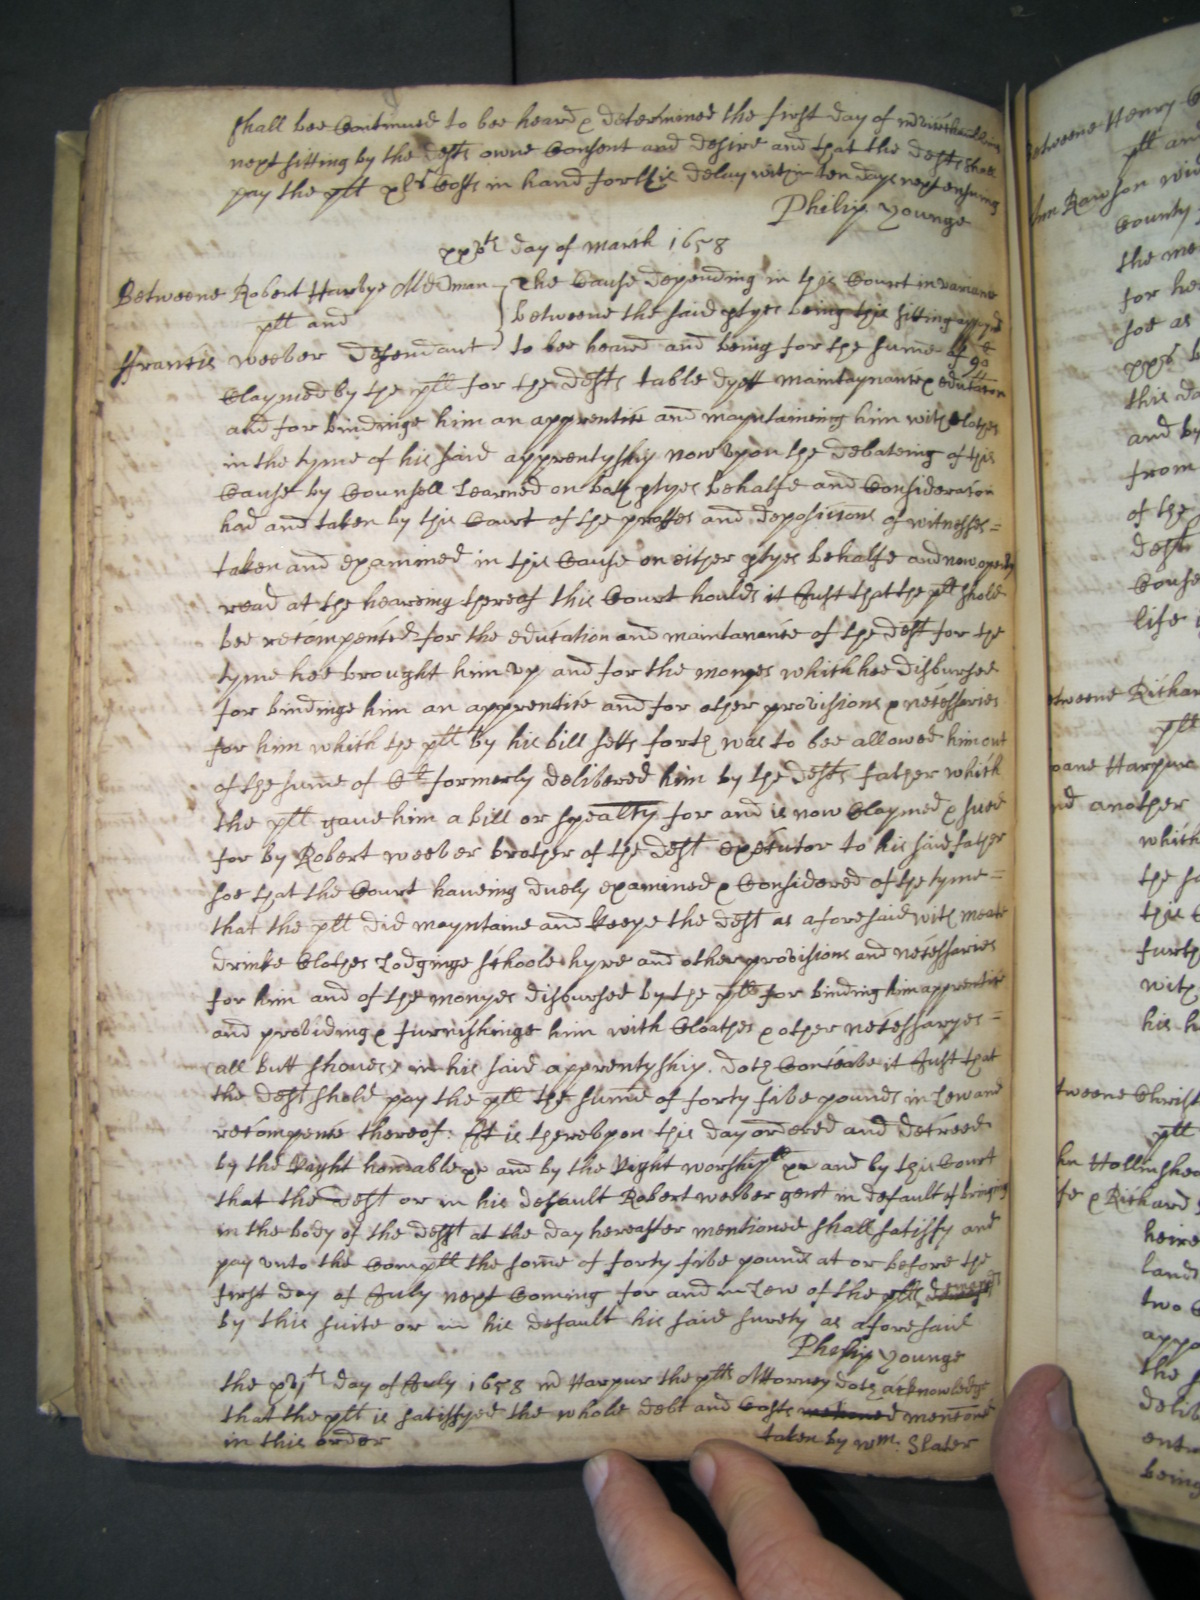 shall bee Continued to bee heard & determined the first day of
next sitting by the defts owne Consent and desire and that the defts shall
pay the plt xls Costs in hand for this delay within ten days next ensuing
Philip Younge
day of March 1658
Betweene Robert Harbye Alderman The Cause depending in this Court in variance
plt and betweene the said ptyes being this sitting
Francis weeber defendant to bee heard and being for the sume of
Claymed by the plt for the defts table dyett maintaynance & education
and for bindinge him an apprentice and mayntaineing him with Clothes
in the tyme of his said apprentyship now upon the debateing of this
Cause by Counsell Learned on both ptyes behalfe and Consideration
had and taken by this Court of the proffes and depositions of witnesses =
taken and examined in this Cause on either ptyes behalfe and now openly
read at the heareing thereof this Court houlds it Just that the plt shold
bee recompenced for the education and maintanance of the deft for the
tyme hee brought him up and for the monyes which hee disbursed
for bindinge him an apprentice and for other provisions & necessaries
for him which the plt by his bill setts forth was to bee allowed him out
of the sume of formerly delivered him by the defts father which
the plt gave him a bill or specalty for and is now Claymed & sued
for by Robert weeber brother of the deft executor to his said father
soe that the Court haveing duely examined & Considered of the tyme =
that the plt did mayntaine and keepe the deft as aforesaid with meate
drinke Clothes Lodginge schoole hyre and other provisions and necessaries
for him and of the monyes disbursed by the plt for binding him apprentice
and providing & furnishinge him with Cloathes & other necessaryes =
(all butt shoues) in his said apprentyship. doth Conceive it Just that
the deft shold pay the plt the sume of forty five pounds in Lew and
recompence thereof: It is thereupon this day ordered and decreed
by the Right honorable &c and by the Right worshipll &c and by this Court
that the deft or in his default Robert weeber gent in default of bringing
in the body of the deft at the day hereafter mentioned shall satisfy and
pay unto the Complt the some of forty five pound at or before the
first day of July next Coming for and in Lew of the plts
by this suite or in his default his said surety as aforesaid
Philip Younge
the xvjth day of July 1658 Harpur the plts Attorney doth acknowledge
that the plt is satisfyed the whole debt and Costs mentioned
in this order taken by wm: Slater
Betweene Henry
plt and
Ann Rawson
County
the
for
soe as
this
and by
from
of the
deft
life
Betweene Richard
plt
Harpur
and another
which
the
this
with
his
Betweene Christ
plt
& Richard
heire
land
two
the
being